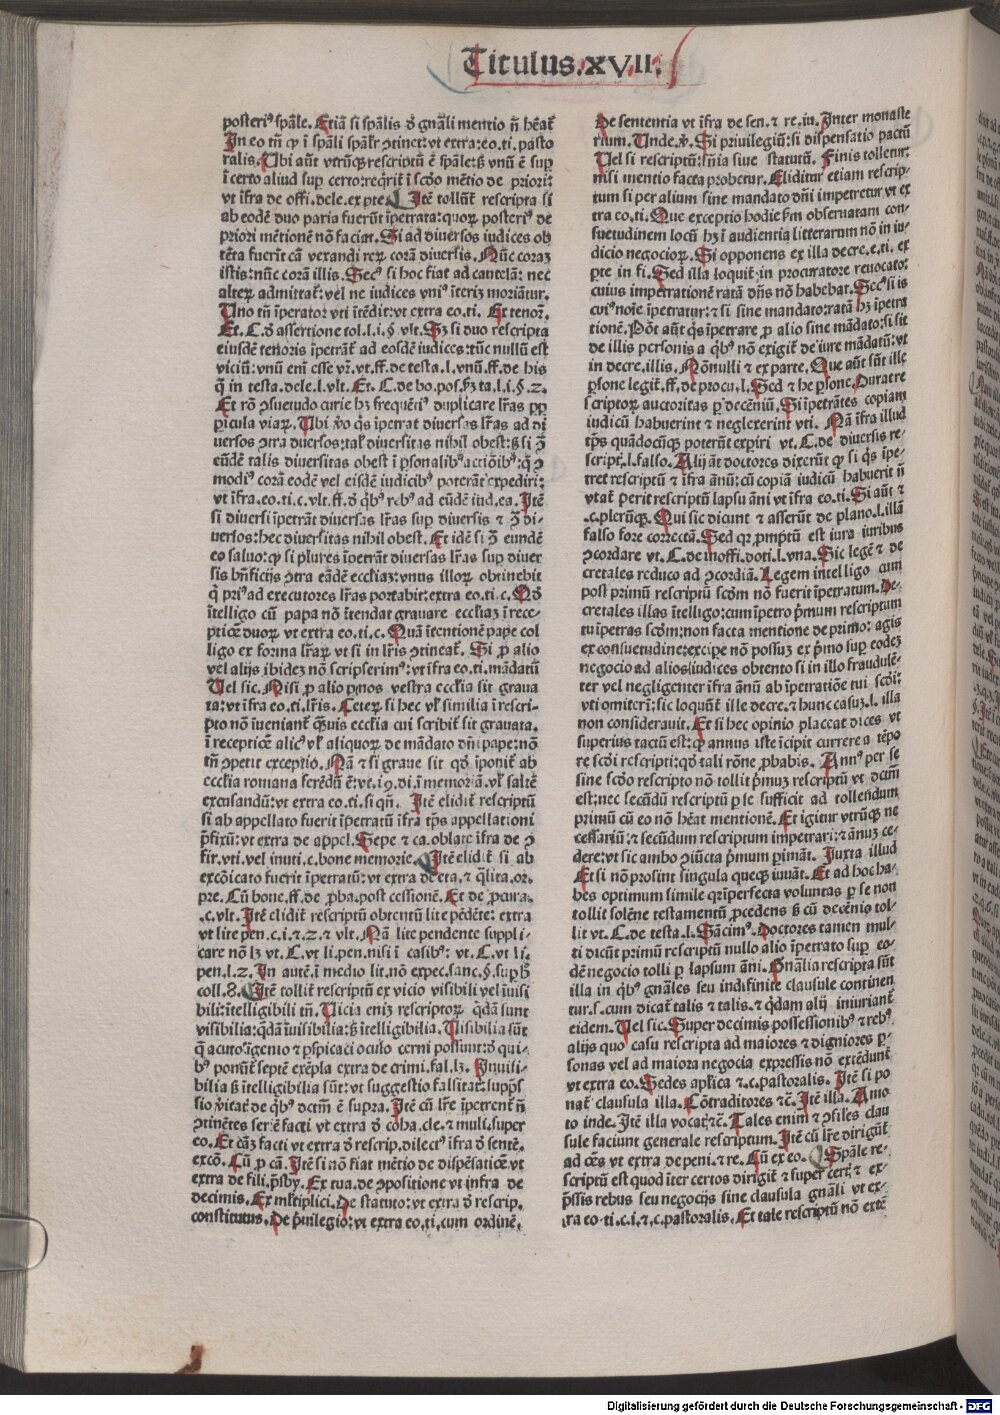 Titulus.xvii.
posteriꝰ spāle. Etiā si spālis ď gnāli mentio nō hēat̄
In eo tn̄ qꝫ ī spāli spālr̄ ꝯtinet̄: vt extra: eo. ti. pasto
ralis. Ubi aūt vtrūqꝫ rescriptū ē spāle: sꝫ vnū ē sup
ī certo aliud sup certo: reqrit̄ ī scd̄o mētio de priori:
vt īfra de offi. dele. ex pte. Itē tollūt̄ rescripta si
ab eodē duo paria fuerūt īpetrata: quoꝝ posteriꝰ de
priori mētionē nō faciat. Si ad diuersos iudices ob
tēta fuerit cā vexandi reꝝ corā diuersis. Nūc coraꝫ
istis: nūc corā illis. Secꝰ si hoc fiat ad cautelā: nec
alteꝝ admittat̄: vel ne iudices vniꝰ īteriꝫ moriātur.
Uno tn̄ īperatoꝝ vti ītēdit: vt extra eo. ti. Ex tenoꝝ.
Et. C. ď assertione tol. l. i. § vlt. Sꝫ si duo rescripta
eiusdē tenoris īpetrāt̄ ad eosdē iudices: tūc nullū est
viciū: vnū eni esse vꝝ. vt. ff. de testa. l. vnū. ff. de his
q̄ in testa. dele. l. vlt. Et. C. de bo. pos. ẜꝫ ta. l. i. §. 2.
Et rō ꝯsuetudo curie hꝫ frequēti duplicare lr̄as ꝓp
pericula viaꝝ. Ubi v̊o qs īpetrat diuersas lr̄as ad di
uersos ꝯtra diuersos: tal diuersitas nihil obest: sꝫ si ꝯ̄
eūdē talis diuersitas obest ī ꝑsonalibꝰ actiōibꝰ: q̄ ꝯ̄
modiꝰ corā eodē vel eisdē iudicibꝰ poterāt expediri:
vt īfra. eo. ti. c. vlt. ff. ď qbꝰ rebꝰ ad eūdē iud. ea. Itē
si diuersi īpetrāt diuersas lr̄as sup diuersis & ꝯ̄ di-
uersos: hec diuersitas nihil obest. Et idē si ꝯ̄ eundē
eo saluo: qꝫ si plures īpetrāt diuersas lr̄as sup diuer
sis bn̄ficijs ꝯtra eādē eccliaꝫ: vnus illoꝝ obtinebit
q̄ priꝰ ad executores lr̄as portabit: extra eo. ti. c.
ītelligo cū papa nō ītendat grauare eccliaꝫ ī rece-
ptiōē duoꝝ vt extra eo. ti. c. Quā ītentionē pape col
ligo ex forma lr̄aꝝ vt si in lr̄is ꝯtineat̄. Si ꝑ alio
vel alijs ibideꝫ nō scripserimꝰ: vt īfra eo. ti. mādatū
Uel sic. Nisi ꝑ alio pmos vestra ecclia sit graua
ta: vt īfra eo. ti. lr̄is. Ceteꝝ si hec vl similia ī rescri-
pto nō īueniant̄ q̄uis ecclia cui scribit̄ sit grauata.
ī receptiōe alicꝰ vl aliquoꝝ de mādato dn̄i pape: nō
tn̄ ꝯpetit exceptio. Nā & si graue sit qd̄ īponit̄ ab
ecclia romana ferēdū ē: vt. 19. di. ī memoriā. vl saltē
excusandū: vt extra eo. ti. si qn̄. Itē elidit̄ rescriptū
si ab appellato fuerit īpetratū īfra tp̄s appellationi
p̄fixū: vt extra de appel. Sepe & ca. oblate īfra de ꝯ
fir. vti. vel inuti. c. bone memorie. Itē elidit̄ si ab
excōicato fuerit īpetratū: vt extra de eta. & q̄lita. or.
pre. Cū bone. ff. de ꝓba. post cessionē. Et de ꝓcura.
.c. vlt. Itē elidit̄ rescriptū obtentū lite pēdēte: extra
vt lite pen. c. i. & 2. & vlt. Nā lite pendente suppli-
care nō lꝫ vt. C. vt li. pen. nisi ī casibꝰ: vt. C. vt li.
pen. l. 2. In autē. ī medio lit. nō expec. sanc. §. sup h̄
coll. 8. Itē tollit̄ rescriptū ex vicio visibili vel īuisi
bili: ītelligibili tn̄. Uicia eniꝫ rescriptoꝝ qdā sunt
visibilia: qdā īuisibilia: sꝫ ītelligibilia. Uisibilia sūt
q̄ acuto īgenio & ꝑspicaci oculo cerni possunt: ď qui-
bꝰ ponūt̄ septē exēpla extra de crimi. fal. lꝫ. Inuisi-
bilia sꝫ ītelligibilia sūt: vt suggestio falsitat̄: supp̄s
sio v̊itat̄ de qbꝰ dctm̄ ē supra. Itē cū lr̄e īpetrent̄ n̄
ꝯtinētes seriē facti vt extra ď coha. cle. & muli. super
eo. Et cāꝫ facti vt extra ď rescrip. dilectꝰ īfra ď sentē.
excō. Cū ꝑ cā. Itē si nō fiat mētio de dispēsatiōe vt
extra de fili. p̄sby. Ex tua. de ꝯpositione vt infra de
decimis. Ex mltiplici. De statuto: vt extra ď rescrip.
constitutus. De p̄uilegio: vt extra eo. ti. cum ordinē.
De sententia vt īfra de sen. & re. iu. Inter monaste
rium. Unde. v̊. Si priuilegiū: si dispensatio pactū
Uel si rescriptū: sn̄ia siue statutū. Finis tolletur:
nisi mentio facta probetur. Eliditur etiam rescrip-
tum si per alium sine mandato dn̄i impetretur vt ex
tra co. ti. Que exceptio hodie ẜm obseruatam con-
suetudinem locū hꝫ ī audientia litterarum nō in iu-
dicio negocioꝝ. Si opponens ex illa decre. e. ti. ex
pte in fi. Sed illa loquit̄: in procuratore reuocato:
cuius impetrationē ratā dn̄s nō habebat. Secꝰ si is
cuiꝰ noīe īpetratur: & si sine mandato: ratā hꝫ īpetra
tionē. Pōt aūt qs īpetrare ꝑ alio sine mādato: si sit
de illis personis a qbꝰ nō exigit̄ de iure mādatū: vt
in decre. illis. Nōnulli & ex parte. Que aūt sūt ille
ꝑsone legit̄. ff. de procu. l. Sed & he ꝑsone. Durat re
scriptoꝝ auctoritas ꝑ decēniū. Si īpetrātes copiam
iudicū habuerint & neglexerint vti. Nā īfra illud
tp̄s quādocūqꝫ poterūt exꝑiri vt. C. de diuersis re-
script. l. falso. Alij āt doctores dixerūt qꝫ si qs īpe-
tret rescriptū & īfra ānū: cū copiā iudicū habuerit n̄
vtat̄ perit rescriptū lapsu āni vt īfra eo. ti. Si aūt &
.c. plerūqꝫ. Qui sic dicunt & asserūt de plano. l. illā
falso fore correctā. Sed qꝛ ꝓmptū est iura iuribus
ꝯcordare vt. C. de inoffi. doti. l. vna. Sic legē & de
cretales reduco ad ꝯcordiā. Legem intelligo cum
post primū rescriptū scd̄m nō fuerit īpetratum. De-
cretales illas ītelligo: cum īpetro p̄mum rescriptum
tu īpetras scd̄m: non facta mentione de primo: agis
ex consuetudine: excipe nō possuꝫ ex p̄mo sup eodeꝫ
negocio ad alios iudices obtento si in illo fraudulē-
ter vel negligenter īfra ānū ab īpetratiōe tui scd̄i:
vti omiteri: sic loquūt̄ ille decre. & hunc casuꝫ. l. illa
non considerauit. Et si hec opinio placcat dices vt
superius tactū est: q annus iste īcipit currere a tēpo
re scd̄i rescripti: qd̄ tali rōne ꝓbabis. Annꝰ per se
sine scd̄o rescripto nō tollit p̄muꝫ rescriptū vt dctm̄
est: nec secūdū rescriptū ꝑ se sufficit ad tollendum
primū cū eo nō hēat mentionē. Et igitur vtrūqꝫ ne
cessariū: & secūdum rescriptum impetrari: & ānuꝫ ce-
dere: vt sic ambo ꝯiūcta p̄mum ꝑimāt. Iuxta illud
Et si nō prosint singula queqꝫ iuuāt. Et ad hoc ha-
bes optimum simile qꝛ īperfecta voluntas ꝑ se non
tollit solēne testamentū ꝓcedens sꝫ cū decēnio tol-
lit vt. C. de testa. l. Sācimꝰ. Doctores tamen mul-
ti dicūt primū rescriptū nullo alio īpetrato sup eo-
dē negocio tolli ꝑ lapsum āni. Gnālia rescripta sūt
illa in qbꝰ gnāles seu indifinite clausule continen
tur. s. cum dicat̄ talis & talis. & qdam alij iniuriant̄
eidem. Uel sic. Super decimis possessionibꝰ & rebꝰ
alijs quo casu rescripta ad maiores & digniores ꝑ-
sonas vel ad maiora negocia expressis nō extēdunt̄
vt extra eo. Sedes aplica & .c. pastoralis. Itē si po
nat̄ clausula illa. Cōtraditores &c̄. Itē illa. Amo
to inde. Itē illa vocat̄. &c̄. Tales enim & ꝯsiles clau
sule faciunt generale rescriptum. Itē cū lr̄e dirigūt̄
ad oēs vt extra de peni. & re. Cū ex eo. Spāle re-
scriptū est quod iter certos dirigit̄ & super certꝭ & ex-
p̄ssis rebus seu negocijs sine clausula gnāli vt ex-
tra eo ti. c. i. & c. pastoralis. Et tale rescriptū nō extē
Digitalisierung gefördert durch die Deutsche Forschungsgemeinschaft - DFG